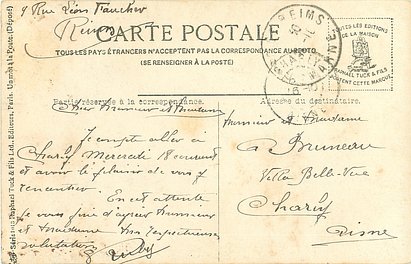 9 Rue Léon Faucher
Reims
CARTE POSTALE
TOUS LES PAYS ÉTRANGERS N'ACCEPTENT PAS LA CORRESPONDANCE AU RECTO.
(SE RENSEIGNER À LA POSTE)
REIMS
MARNE
TOUTES LES ÉDITIONS
DE LA MAISON
RAPHAEL TUCK & FILS
PORTENT CETTE MARQUE
Partie réservée à la correspondance.
Adresse du destinataire.
Cher Monsieur et Madame
Je compte aller à
Charly Mercredi 18 courant
et avoir le plaisir de vous y
rencontrer.
En cet attente
je vous prie d'agréer Monsieur
et Madame mes respectueuses
salutations
Monsieur et Madame
Bruneau
Villa Belle-Vue
Charly
Aisne
Raphael Tuck & Fils Ltd., Editeurs, Paris. Un mot à la Poste. (Déposé)